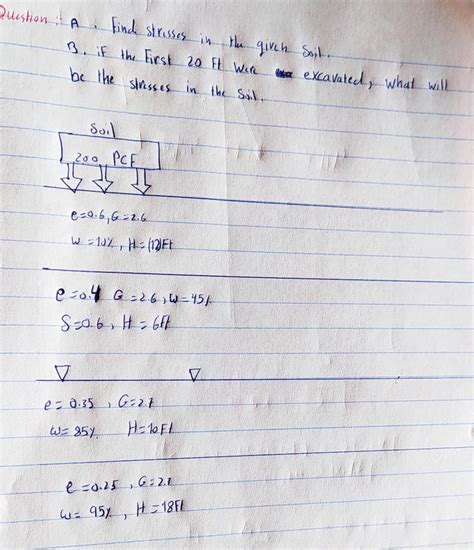 Question : A . Find stresses in the given Soil.
B. if the First 20 Ft were excavated, what will
be the stresses in the Soil.
Soil
200 PCF
e=0.6, G=2.6
W=10%, H=(12)Ft
e=0.4 G=2.6, W=45%
S=0.6, H=6Ft
e=0.35, G=2.7
W=85% H=10Ft
e=0.25, G=2.7
W=95%, H=18Ft